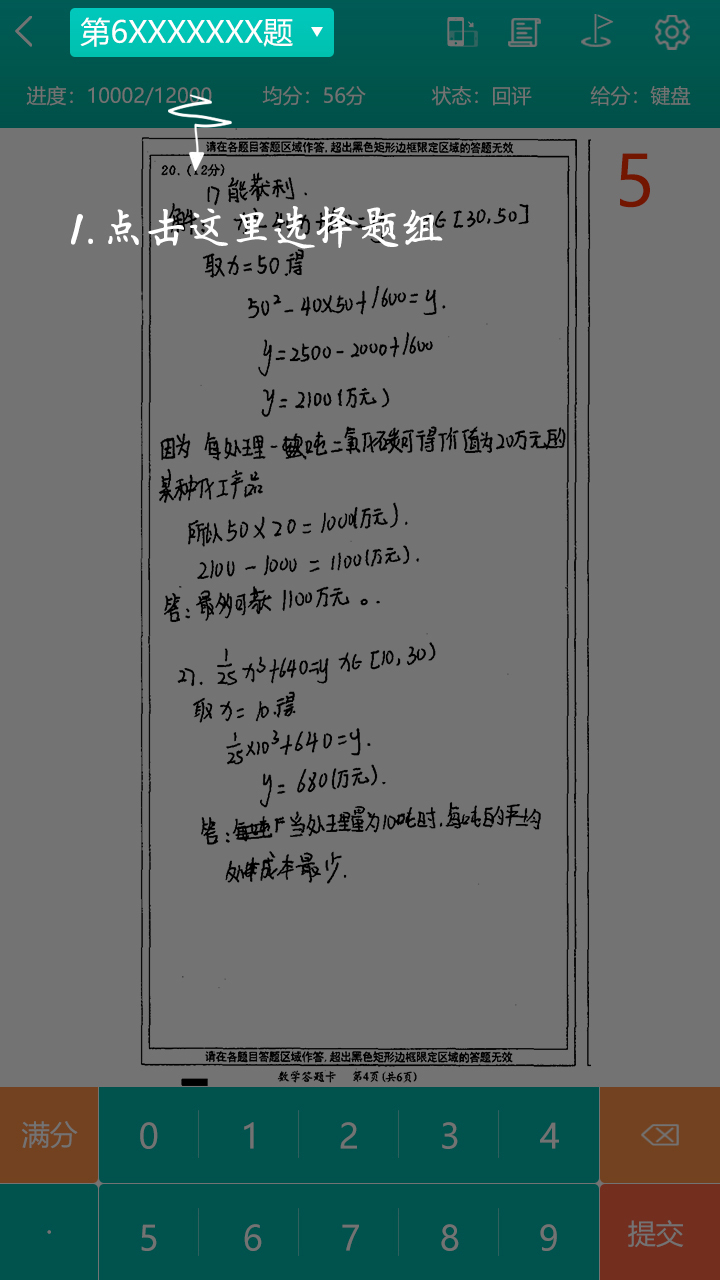 第6XXXXXXX题
进度：10002/12000 均分：56分 状态：回评 给分：键盘
请在各题目答题区域作答，超出黑色矩形边框限定区域的答题无效
5
20.（12分）
1) 能获利.
1.点击这里选择题组
∈[30,50]
取x=50得
50²-40×50+1600=y.
y=2500-2000+1600
y=2100(万元)
因为 每处理一吨二氧化碳可得价值为20万元的
某种化工产品
所以50×20=1000(万元).
2100-1000=1100(万元).
答:最多可获1100万元。.
27. 1/25 x³+640=y x∈[10,30)
取x=10得
1/25×10³+640=y.
y=680(万元).
答: 当处理量为10吨时,每吨的平均
成本最少.
请在各题目答题区域作答，超出黑色矩形边框限定区域的答题无效
数学答题卡 第4页(共6页)
满分 0 1 2 3 4
. 5 6 7 8 9 提交